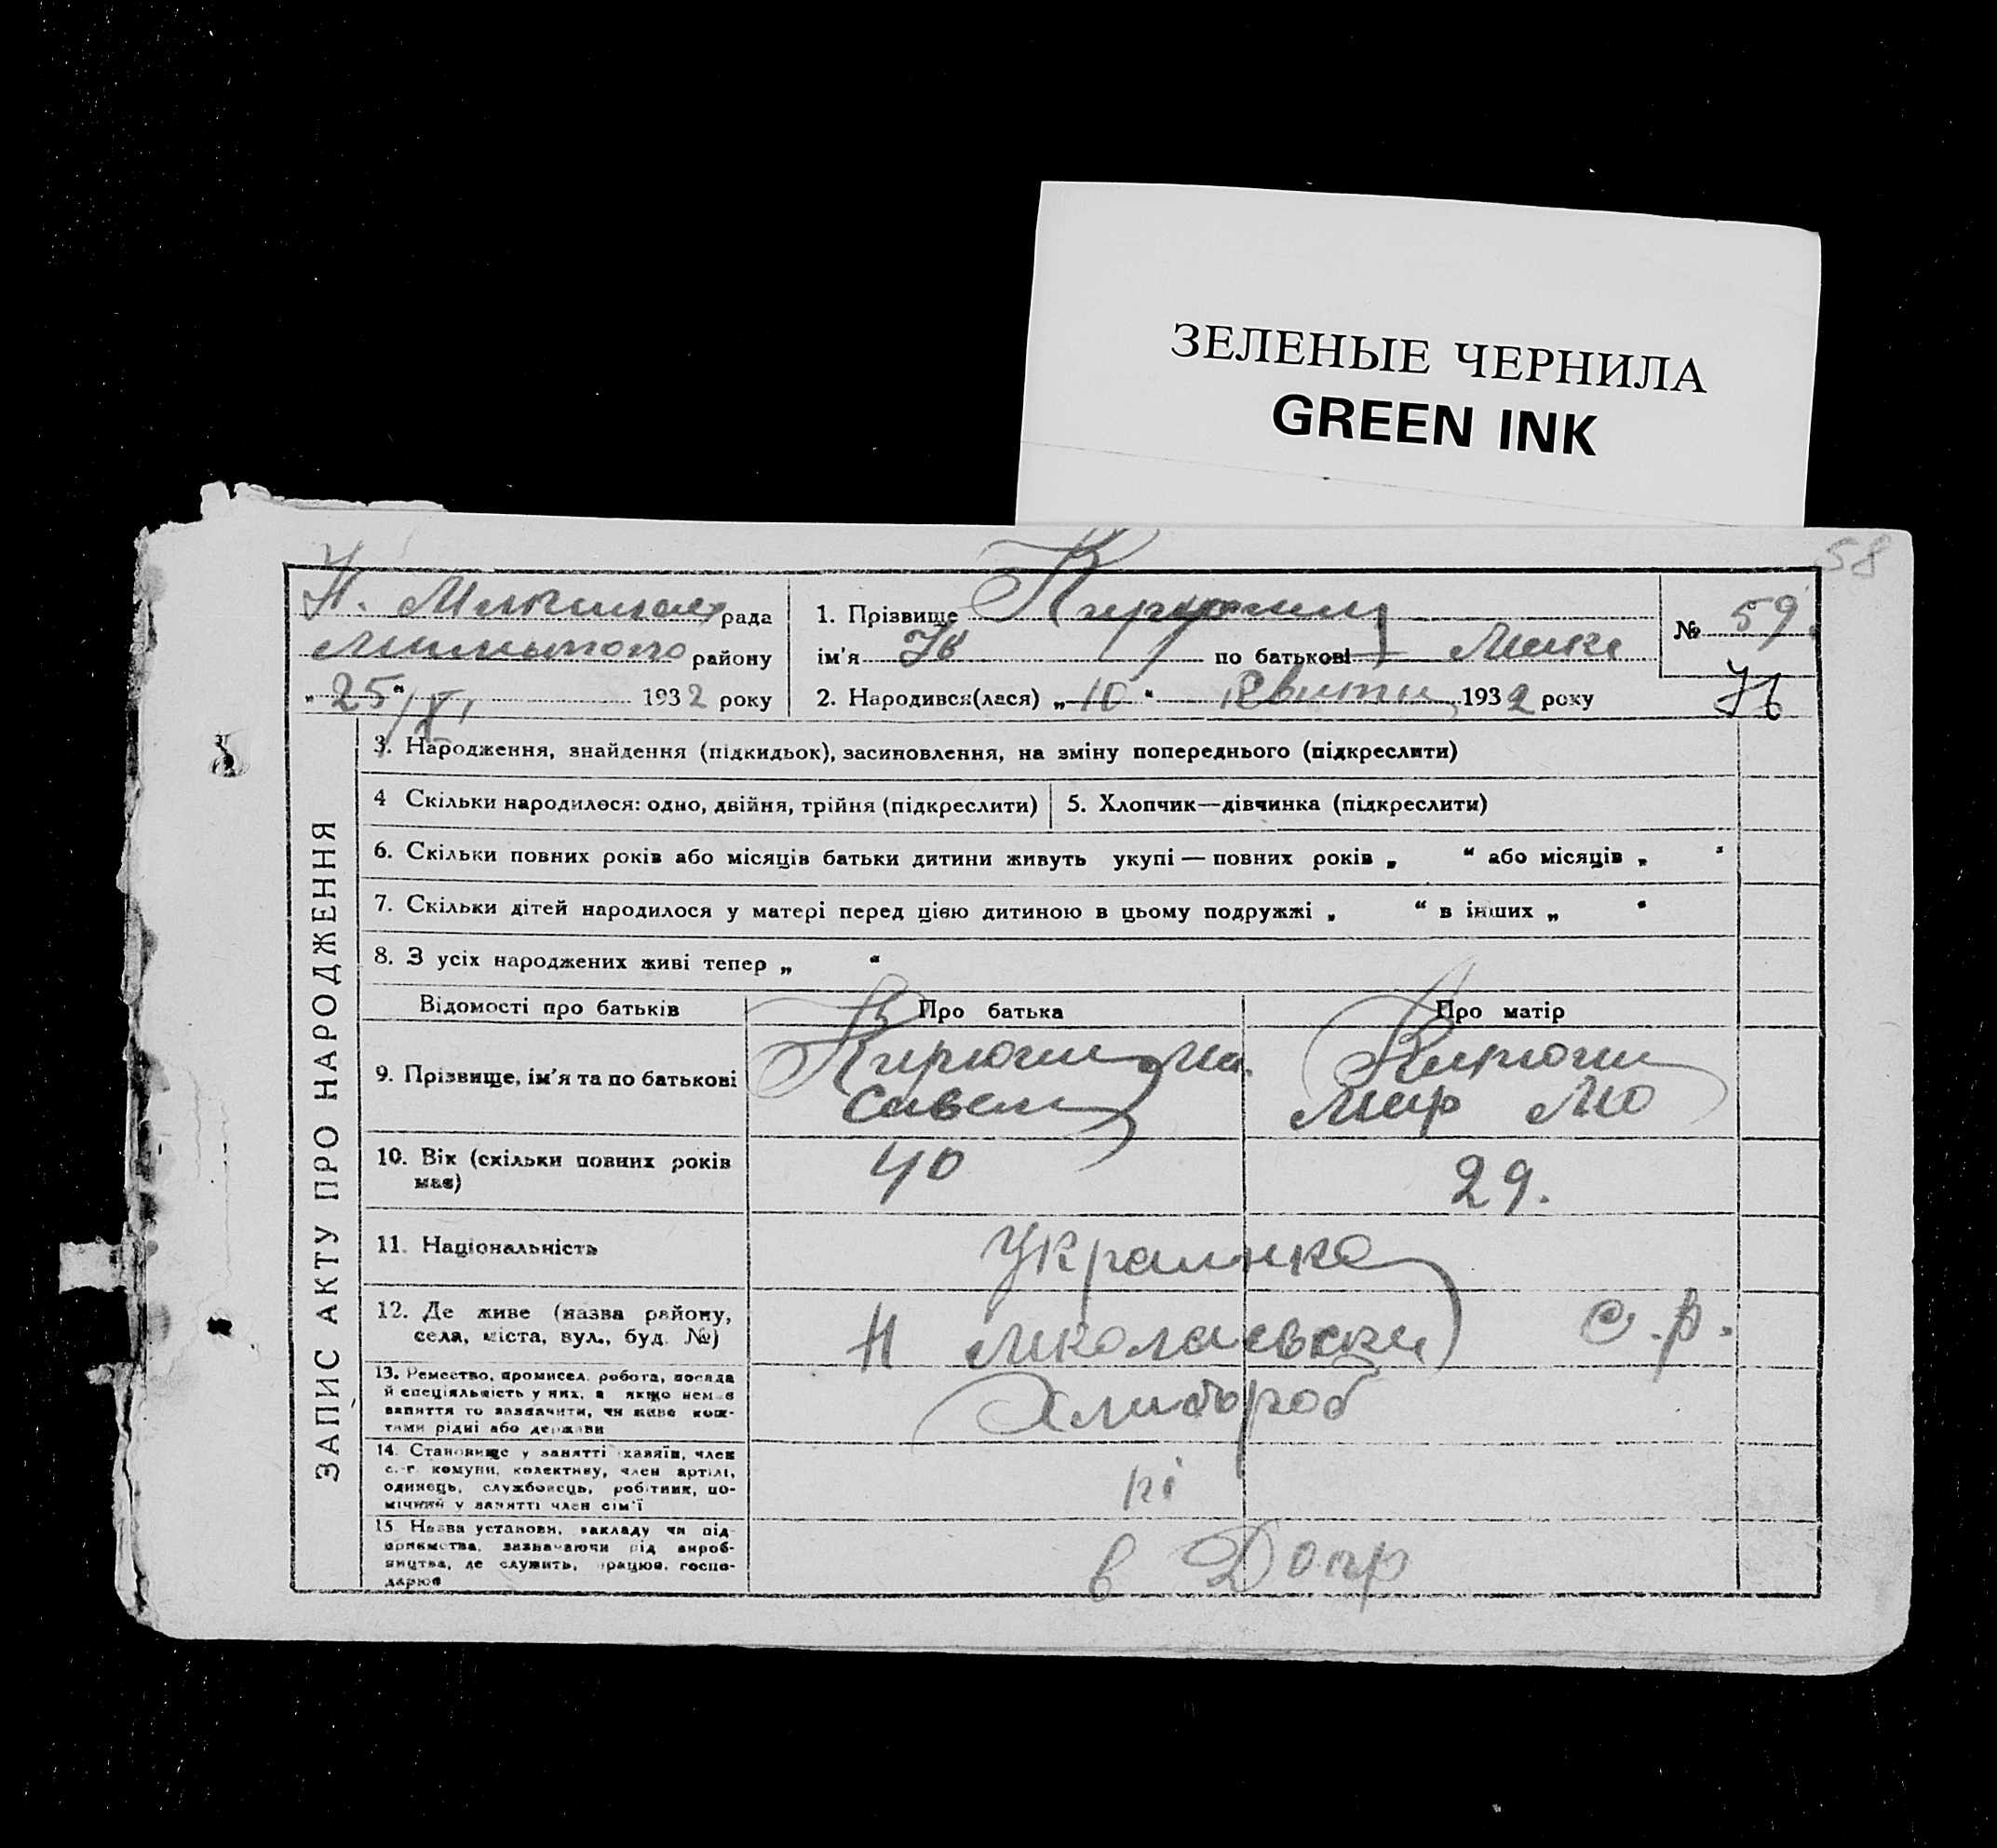 ЗЕЛЕНЫЕ ЧЕРНИЛА
GREEN INK
58
Н. рада
району
„25“/XI 1932 року
1. Прізвище
ім'я Ів по батькові Мики
2. Народився(лася) „10“ 1932 року
№ 59
ЗАПИС АКТУ ПРО НАРОДЖЕННЯ
3. Народження, знайдення (підкидьок), засиновлення, на зміну попереднього (підкреслити)
4 Скільки народилося: одно, двійня, трійня (підкреслити) 5. Хлопчик—дівчинка (підкреслити)
6. Скільки повних років або місяців батьки дитини живуть укупі — повних років „ “ або місяців „ “
7. Скільки дітей народилося у матері перед цією дитиною в цьому подружжі „ “ в інших „ “
8. З усіх народжених живі тепер „ “
Відомості про батьків Про батька Про матір
9. Прізвище, ім'я та по батькові Кирюши Кирюши
Савел Мар
10. Вік (скільки повних років 40 29.
має)
11. Національність Украинка
12. Де живе (назва району, Н Миколаевски с.р.
села, міста, вул., буд. №)
13. Ремество, промисел, робота, посада Хлибороб
й спеціяльність у них, а якщо немає
заняття то зазначити, чи живе кош-
тами рідні або держави
14. Становище у занятті хазяїн, член
с.-г. комуни, колективу, член артілі,
одинець, службовець, робітник, по-
мічний у занятті член сім'ї
15. Назва установи, закладу чи під-
приємства, зазначаючи рід вироб-
ництва, де служить, працює, госпо-
дарює
в Допр